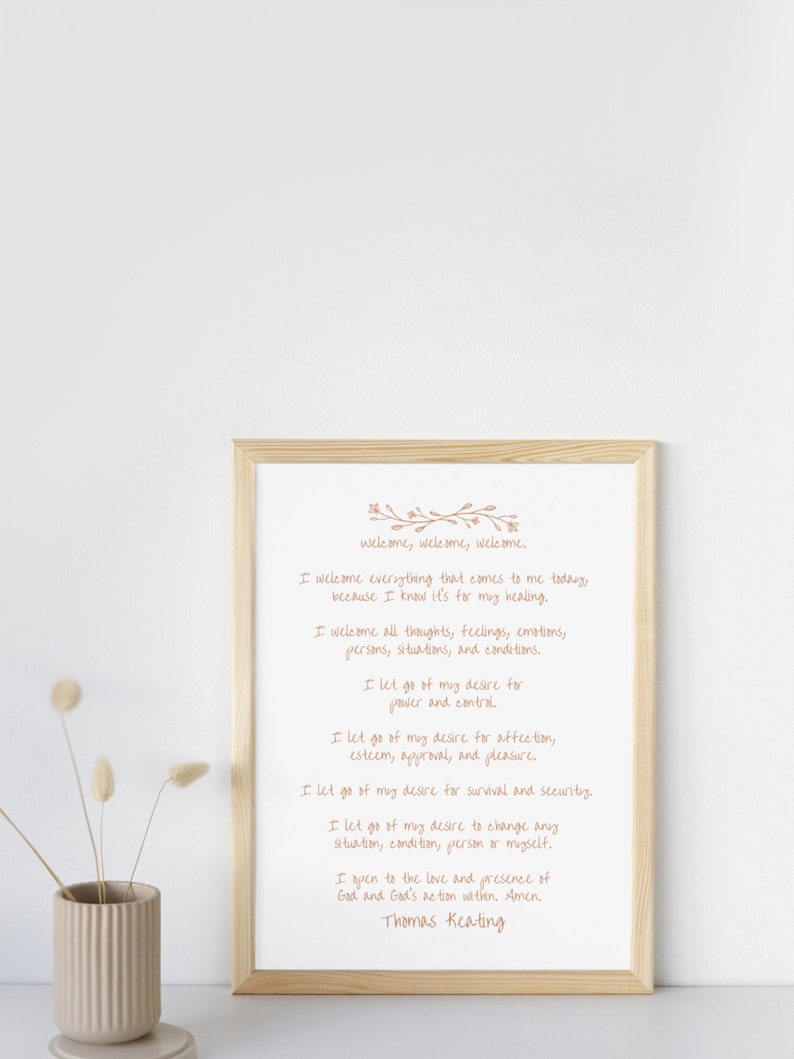 Welcome, welcome, welcome.
I welcome everything that comes to me today,
because I know it's for my healing.
I welcome all thoughts, feelings, emotions,
persons, situations, and conditions.
I let go of my desire for
power and control.
I let go of my desire for affection,
esteem, approval, and pleasure.
I let go of my desire for survival and security.
I let go of my desire to change any
situation, condition, person or myself.
I open to the love and presence of
God and God's action within. Amen.
Thomas Keating